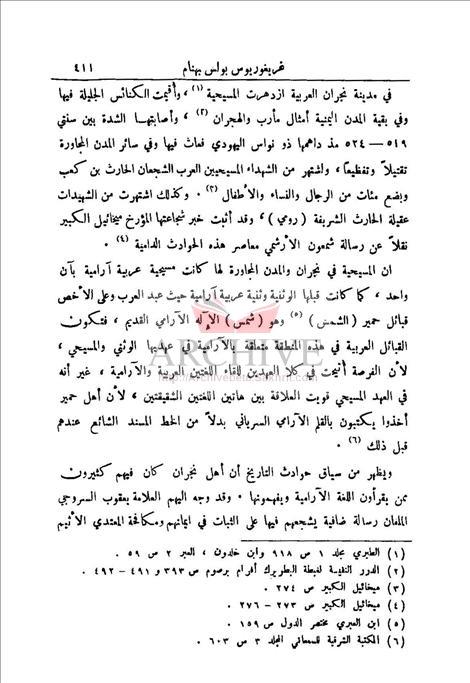 غريغوريوس بولس بهنام ٤١١
في مدينة نجران العربية ازدهرت المسيحية (١) ، وأقيمت الكنائس الجليلة فيها
وفي بقية المدن اليمنية أمثال مأرب والهجران (٢) ، وأصابتها الشدة بين سنتي
٥١٩ — ٥٢٤ مذ داهمها ذو نواس اليهودي فعاث فيها وفي سائر المدن المجاورة
تقتيلاً وتفظيعاً ، واشتهر من الشهداء المسيحيين العرب الشجعان الحارث بن كعب
وبضع مئات من الرجال والنساء والأطفال (٣) . وكذلك اشتهرت من الشهيدات
عقيلة الحارث الشريفة ( رومي ) ، وقد أثبت خبر شجاعتها المؤرخ ميخائيل الكبير
نقلاً عن رسالة شمعون الأرشمي معاصر هذه الحوادث الدامية (٤) .
ان المسيحية في نجران والمدن المجاورة لها كانت مسيحية عربية آرامية بآن
واحد ، كما كانت قبلها الوثنية وثنية عربية آرامية حيث عبد العرب وعلى الأخص
قبائل حمير ( الشمش ) (٥) وهو ( شمس ) الإله الآرامي القديم ، فتكون
القبائل العربية في هذه المنطقة متعلقة بالآرامية في عهديها الوثني والمسيحي ،
لأن الفرصة أتيحت في كلا العهدين للقاء اللغتين العربية والآرامية ، غير أنه
في العهد المسيحي قويت العلاقة بين هاتين اللغتين الشقيقتين ، لأن أهل حمير
أخذوا يكتبون بالقلم الآرامي السرياني بدلاً من الخط المسند الشائع عندهم
قبل ذلك (٦) .
ويظهر من سياق حوادث التاريخ أن أهل نجران كان فيهم كثيرون
ممن يقرأون اللغة الآرامية ويفهمونها . وقد وجه اليهم العلامة يعقوب السروجي
الملفان رسالة ضافية يشجعهم فيها على الثبات في ايمانهم ومكافحة المعتدي الاثيم
(١) الطبري مجلد ١ ص ٩١٨ وابن خلدون ، العبر ٢ ص ٥٩ .
(٢) الدرر النفيسة لغبطة البطريرك أفرام برصوم ص ٣٩٣ و ٤٩١ – ٤٩٢ .
(٣) ميخائيل الكبير ص ٢٧٤ .
(٤) ميخائيل الكبير ص ٢٧٣ – ٢٧٦ .
(٥) ابن العبري مختصر الدول ص ١٥٩ .
(٦) المكتبة الشرقية للسمعاني المجلد ٣ ص ٦٠٣ .
ARCHIVE
http://Archivebeta.Sakhrit.com